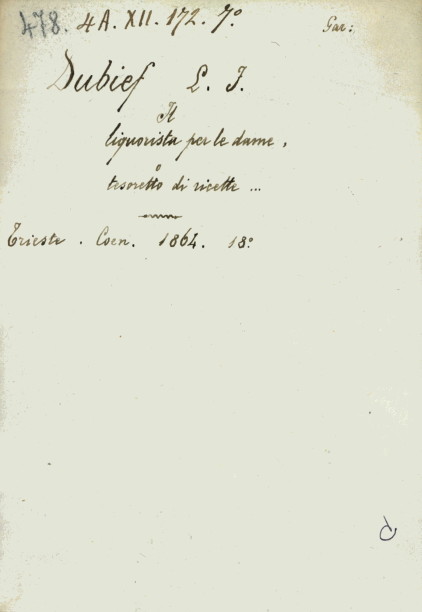 478. 4A. XII. 172. 7.° Gar:
Dubief L. J.
Il
liquorista per le dame,
o
tesoretto di ricette ...
Trieste. Coen. 1864. 18°